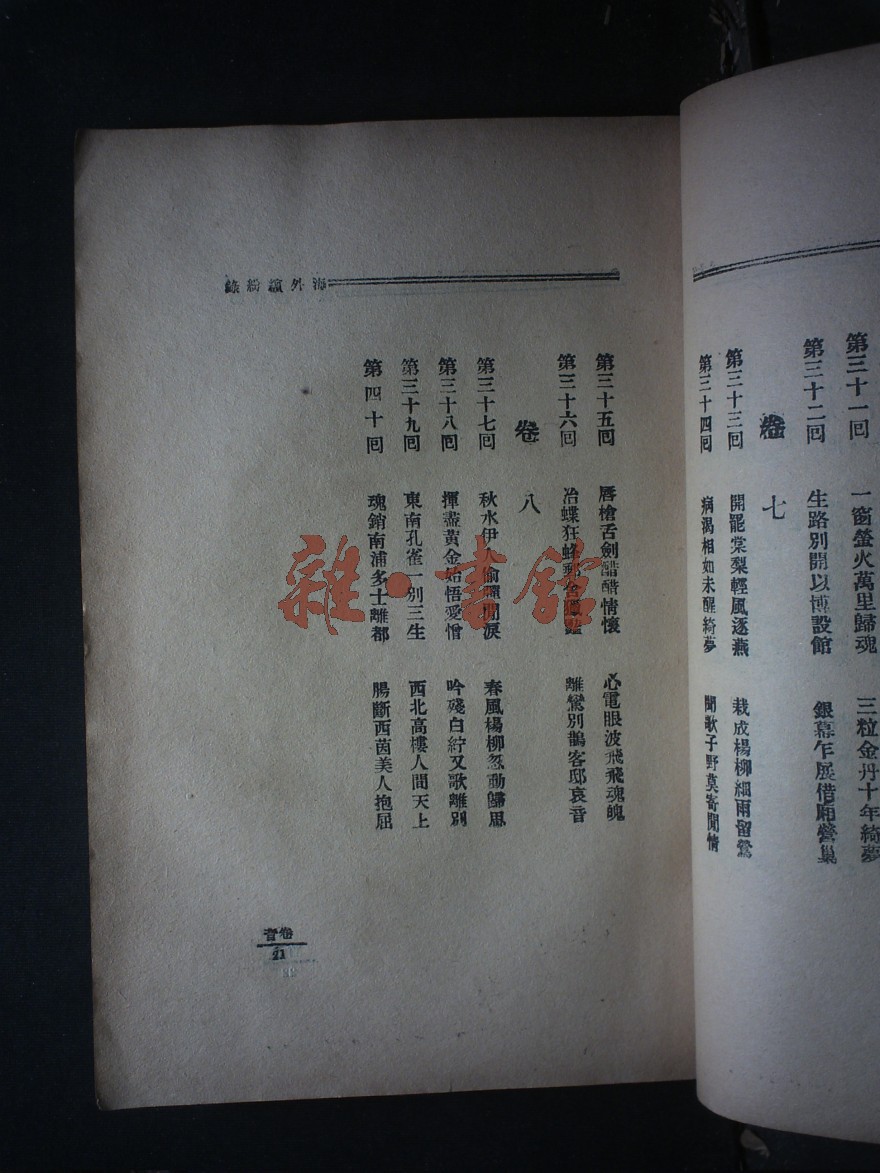 第三十一回 一窗螢火萬里歸魂 三粒金丹十年綺夢
第三十二回 生路別開以博設館 銀幕乍展借廂營巢
卷七
第三十三回 開罷棠梨輕風逐燕 栽成楊柳細雨留鶯
第三十四回 病渴相如未醒綺夢 聞歌子野莫寄閒情
海外繽紛錄
第三十五回 唇槍舌劍醋醋情懷 心電眼波飛飛魂魄
第三十六回 冶蝶狂蜂郵 離鸞別鵲客邸哀音
卷八
第三十七回 秋水伊人偷彈閒淚 春風楊柳忽動歸思
第三十八回 揮盡黃金始悟愛憎 吟殘白紵又歌離別
第三十九回 東南孔雀一別三生 西北高樓人間天上
第四十回 魂銷南浦多士離都 腸斷西茵美人抱屈
卷首
21
雜·書館